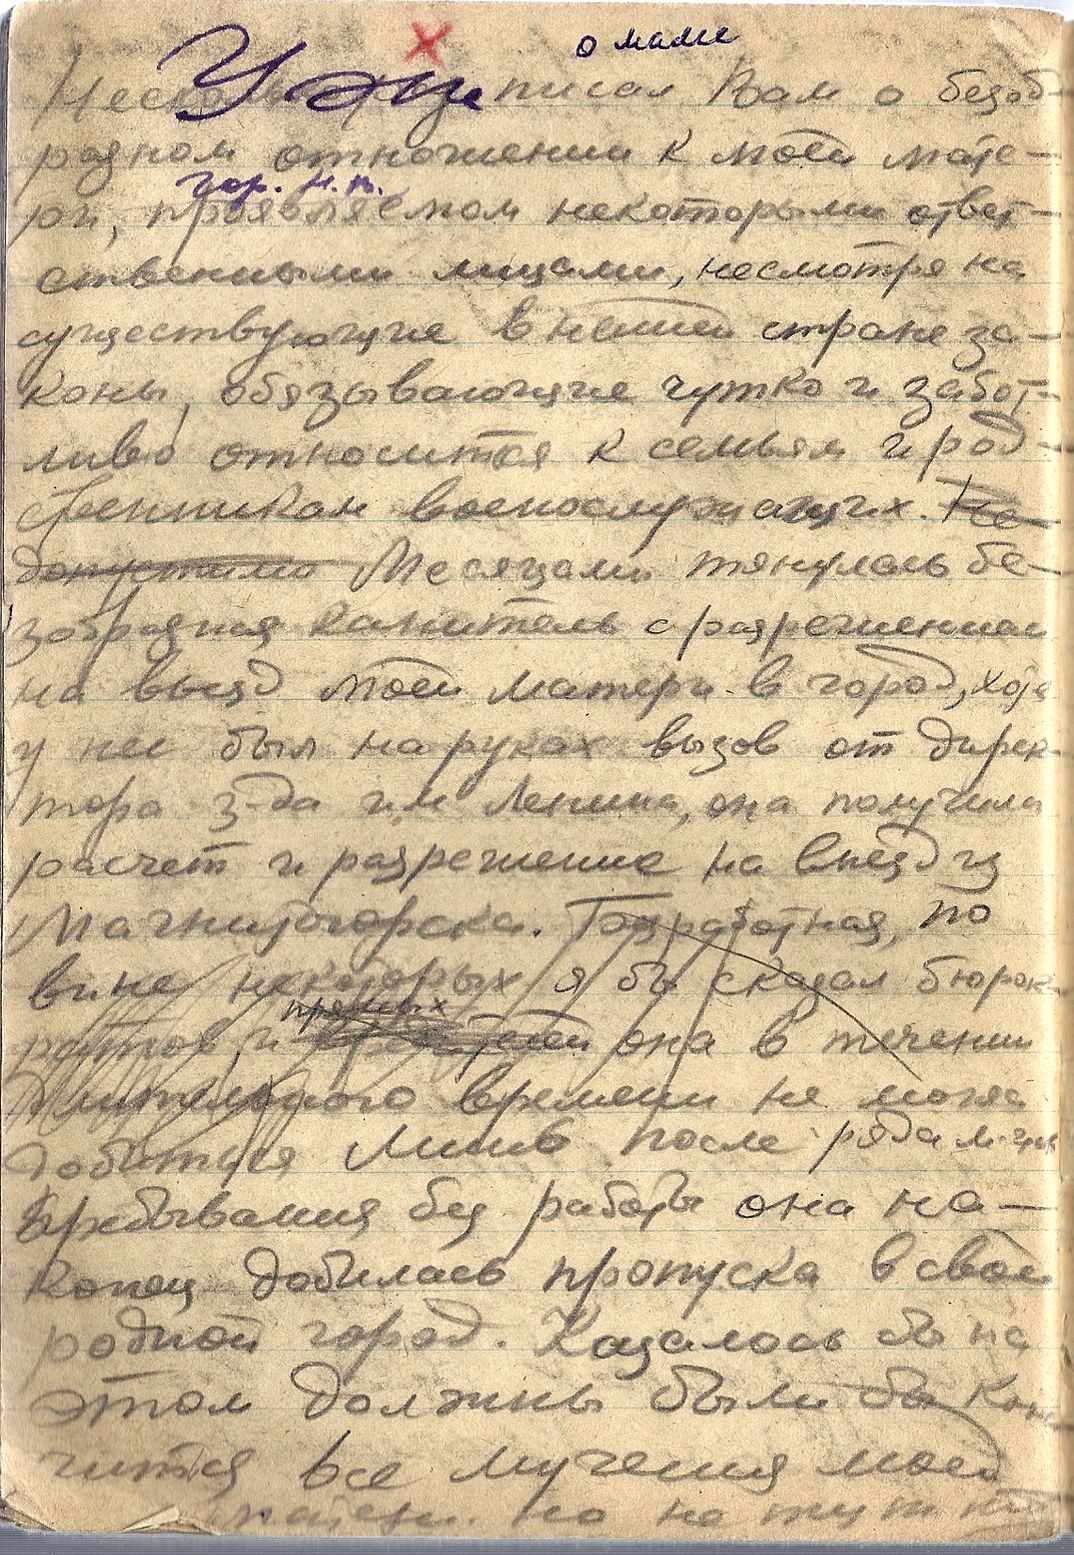 о маме
Несколько раз писал Вам о безоб-
разном отношении к моей мате-
гор. н. в.
ри, проявляемом некоторыми ответ-
ственными лицами, несмотря на
существующие в нашей стране за-
коны, обязывающие чутко и забот-
ливо относится к семьям и род-
ственникам военослужащих. Не-
допустимо Месяцами тянулась бе-
зобразная канитель с разрешением
на въезд моей матери в город, хотя
у нее был на руках вызов от дирек-
тора з-да им Ленина, она получила
расчет и разрешение на выезд из
Магнитогорска. Безработная, по
вине некоторых я бы сказал бюрок-
прямых
ратров, и она в течении
длительного времени не могла
добиться Лишь после ряда м-цев
Пребывания без работы она на-
конец добилась пропуска в свой
родной город. Казалось бы на
этом должны были бы кон
читься все мучения моей
матери но не тут то